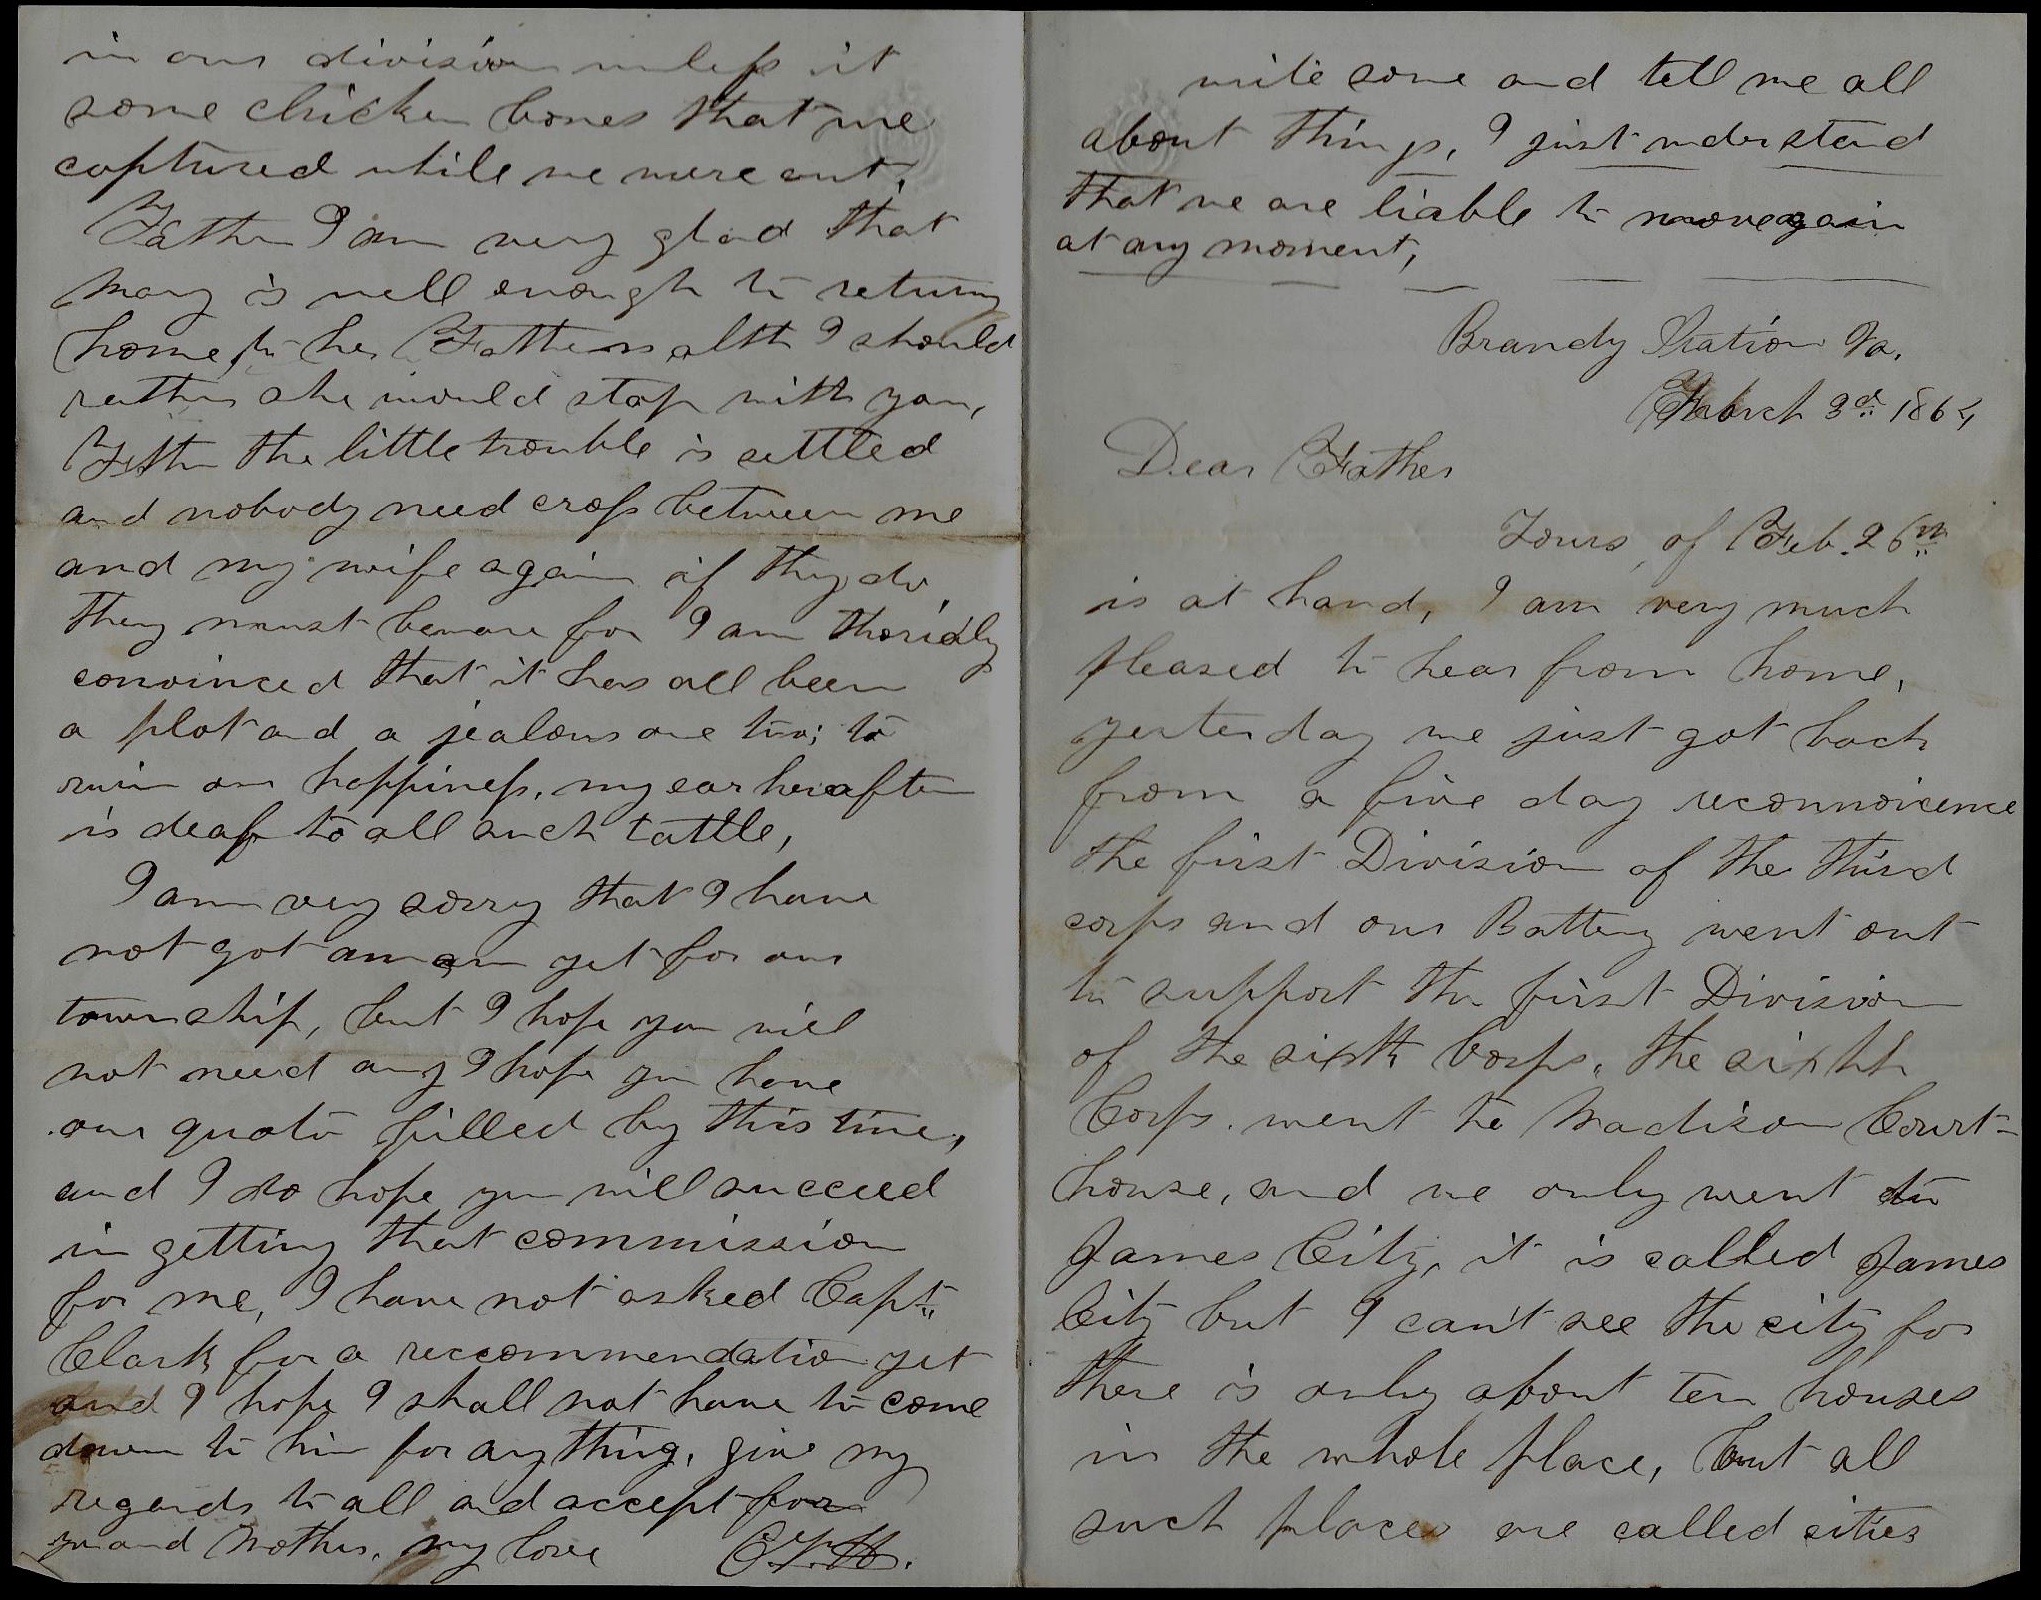 write some and tell me all
about things, I just understand
that we are liable to move again
at any moment,
Brandy Station Va.
March 3d 1864
Dear Father
Yours, of Feb. 26th
is at hand, I am very much
pleased to hear from home,
yesterday we just got back
from a five day reconnoicence
the first Division of the third
corps and our Battery went out
to support the first Division
of the sixth Corps, the sixth
Corps went to Madison Court-
house, and we only went to
James City, it is called James
City but I can't see the city for
there is only about ten houses
in the whole place, but all
such places are called cities
in our division unless it
some chicken bones that we
captured while we were out,
Father I am very glad that
Mary is well enough to return
home, to her Fathers alth I should
rather she would stop with you,
Father the little trouble is settled
and nobody need cross between me
and my wife again if they do
they must beware for I am
convinced that it has all been
a plot and a jealous one too; to
ruin our happiness, my ear hereafter
is deaf to all such tattle,
I am very sorry that I have
not got a man yet for our
township, but I hope you will
not need any I hope you have
our quoto filled by this time,
and I do hope you will succeed
in getting that commission
for me, I have not asked Capt.
Clark for a reccommendation yet
and I hope I shall not have to come
down to him for anything, give my
regards to all and accept for
you and Mother, my love